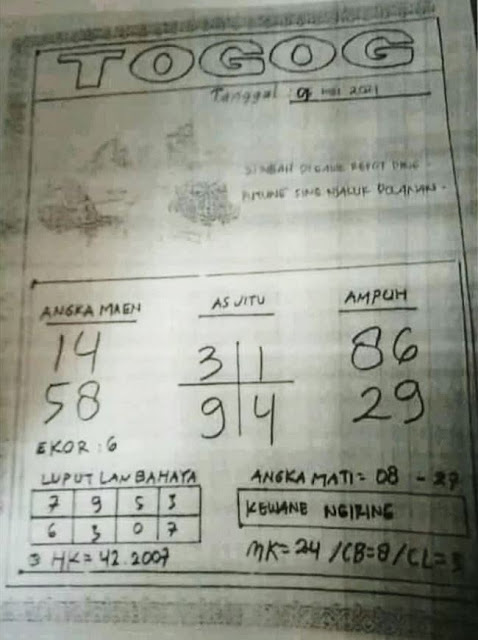 TOGOG
Tanggal : 9 mei 2021
SIMBAH DIGAWE REPOT
PUTUNE SING NJALUK DOLANAN.
ANGKA MAEN
14
58
EKOR : 6
AS JITU
3 1
9 4
AMPUH
86
29
LUPUT LAN BAHAYA
7 9 5 3
6 3 0 7
3 HK = 42.2007
ANGKA MATI = 08 - 27
KEWANE NGIRING
MK = 24 / CB = 8 / CL =